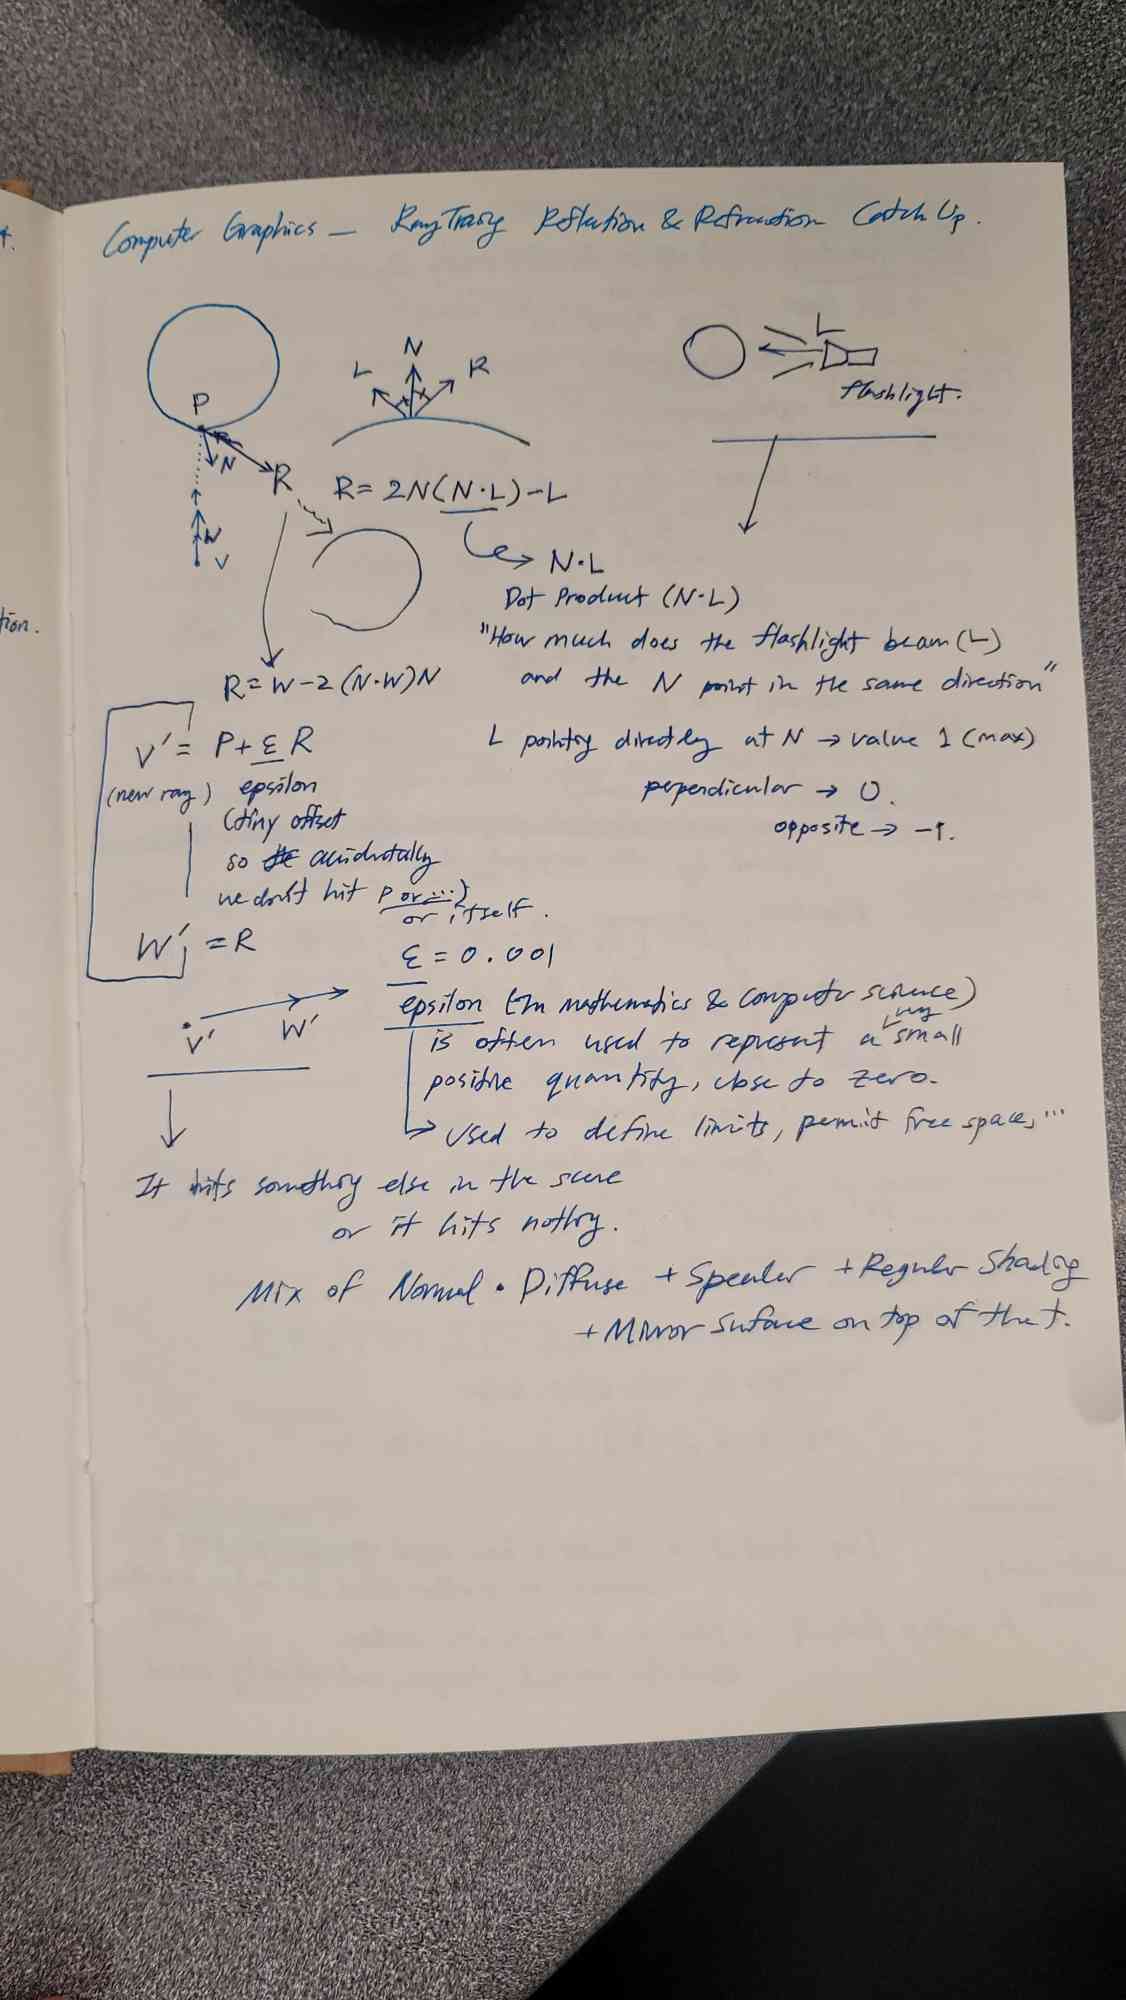 t.
Computer Graphics — RayTracing Reflection & Refraction Catch Up.
P
N
R
W
V
L
N
R
R = 2N(N·L) - L
L
flashlight.
N·L
Dot Product (N·L)
"How much does the flashlight beam (L)
and the N point in the same direction"
R = W - 2(N·W)N
L pointing directly at N → value 1 (max)
perpendicular → 0.
opposite → -1.
tion.
V' = P + ε R
(new ray) epsilon
(tiny offset
so accidentally
we don't hit P or ...)
or itself.
W' = R
ε = 0.001
V' W'
epsilon (In mathematics & computer science)
is often used to represent a very small
positive quantity, close to zero.
→ Used to define limits, permit free space, ...
It hits something else in the scene
or it hits nothing.
Mix of Normal · Diffuse + Specular + Regular Shading
+ Mirror Surface on top of that.